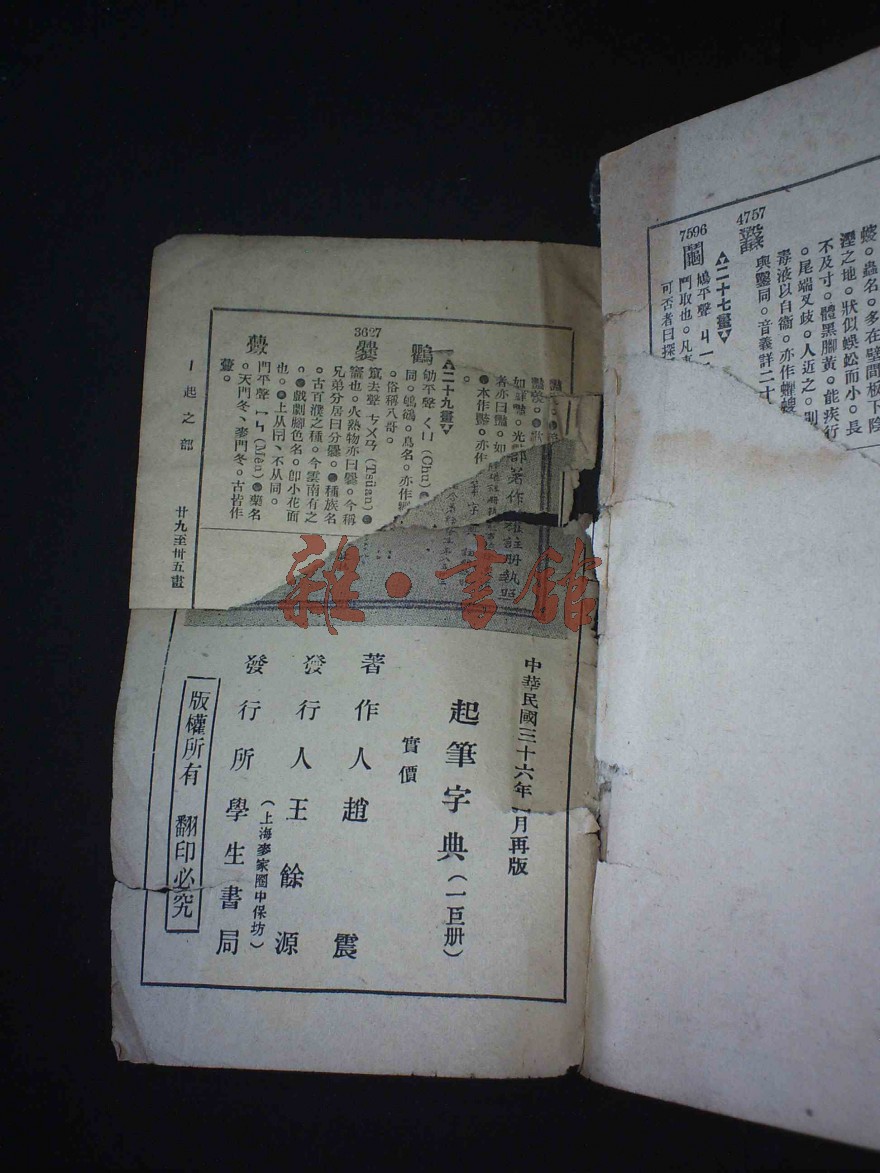 4757
蠼
螋。蟲名。多在壁間板下陰
溼之地。狀似蜈蚣而小。長
不及寸。體黑腳黃。能疾行
。尾端叉歧。人近之。則
毒液以自衞。亦作蠷螋
與鑿同。音義詳二十
二十七畫
7596
鬮
鳩平聲ㄐㄧ
鬥取也。凡事
可否者曰探
如
者亦曰豔。如
●本作豔。亦作
。
二十九畫
鸜
劬平聲ㄑㄩ(Chü)●
同。鸜鵒。鳥名。亦作
。俗稱八哥。
3627
爨
竄去聲ㄘㄨㄢ(Tsüan)●
竈也。火熟物亦曰爨。今稱
兄弟分居曰分爨。●種族名
。古百濮之種。今雲南有之
。●戲劇腳色名。卽小花面
也。●上从𦥑、不从同。
虋
門平聲ㄇㄣ(Men)●菊名
。天門冬、麥門冬。古皆作
虋。
丨起之部
廿九至卅五畫
部著作
註册執照
雜·書館
中華民國三十六年 月再版
起筆字典(一巨册)
實價
著作人趙震
發行人王餘源
發行所學生書局
(上海麥家圈中保坊)
版權所有 翻印必究